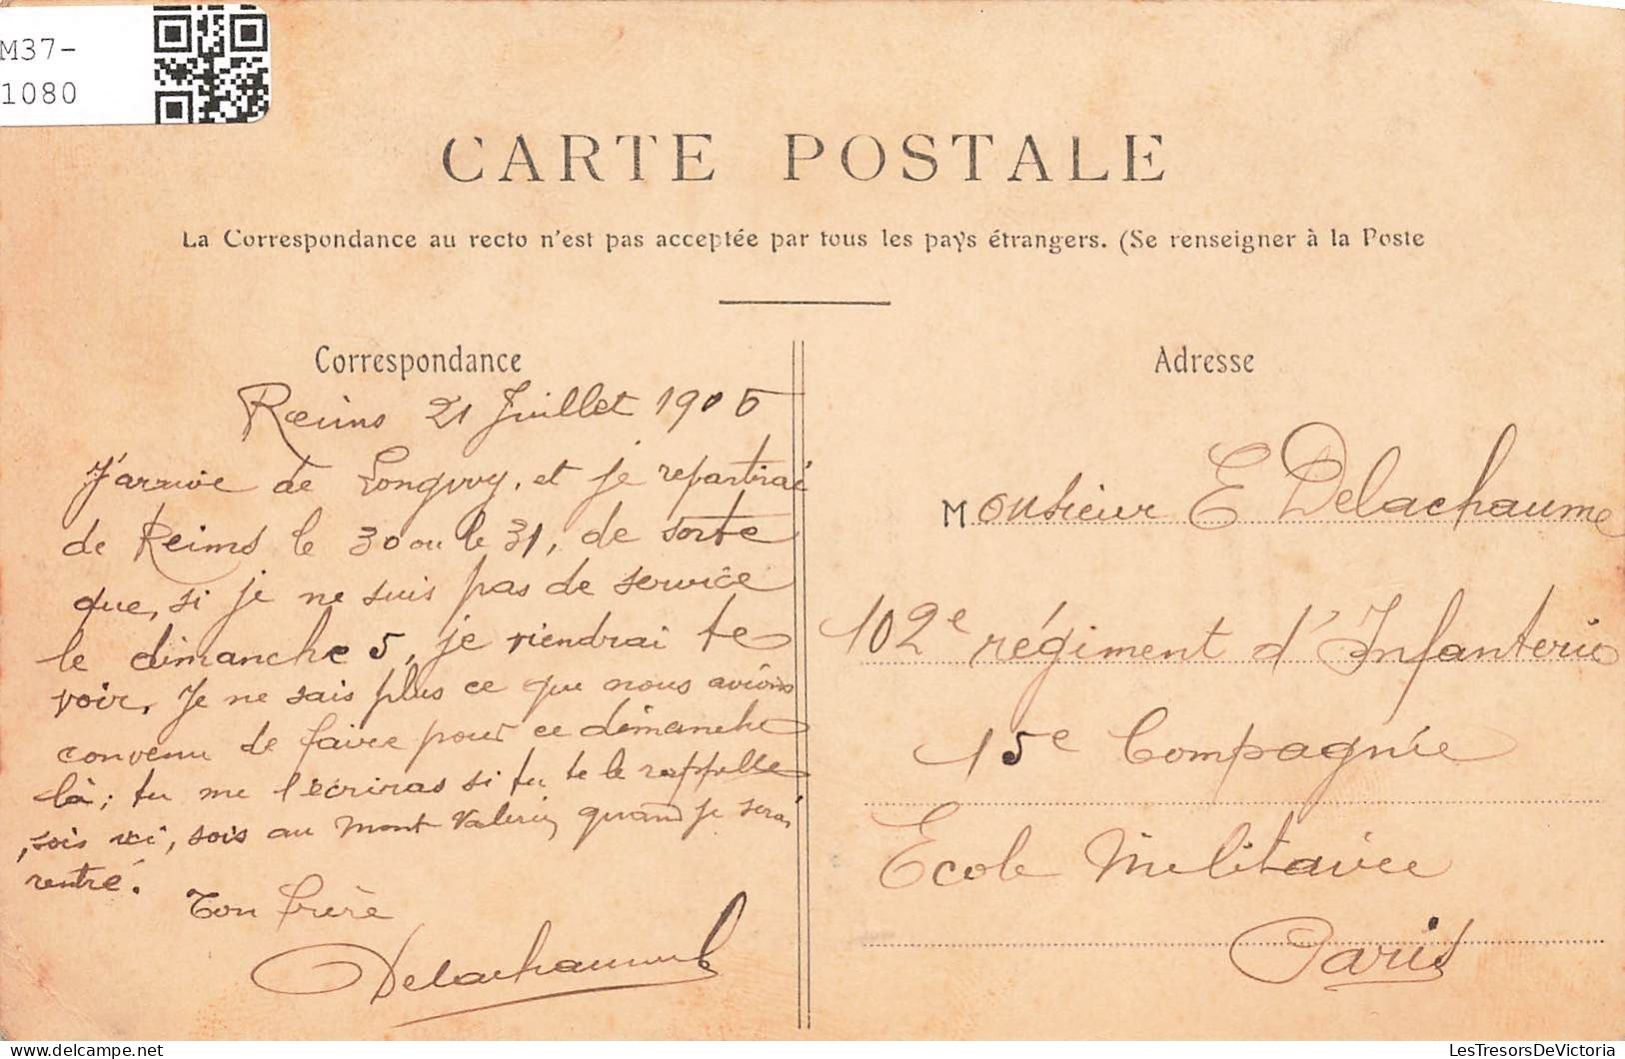 M37-
1080
CARTE POSTALE
La Correspondance au recto n'est pas acceptée par tous les pays étrangers. (Se renseigner à la Poste
Correspondance
Reims 21 Juillet 1906
J'arrive de Longwy, et je repartirai
de Reims le 30 ou le 31, de sorte
que, si je ne suis pas de service
le dimanche 5, je viendrai te
voir. Je ne sais plus ce que nous avions
convenu de faire pour ce dimanche
là; tu me l'écriras si tu te le rappelle
, sois ici, sois au Mont Valérien quand je serai
rentré.
Ton frère
Delachaume
Adresse
Monsieur E Delachaume
102e régiment d'Infanterie
15e Compagnie
Ecole Militaire
Paris
LesTresorsDeVictoria
delcampe.net